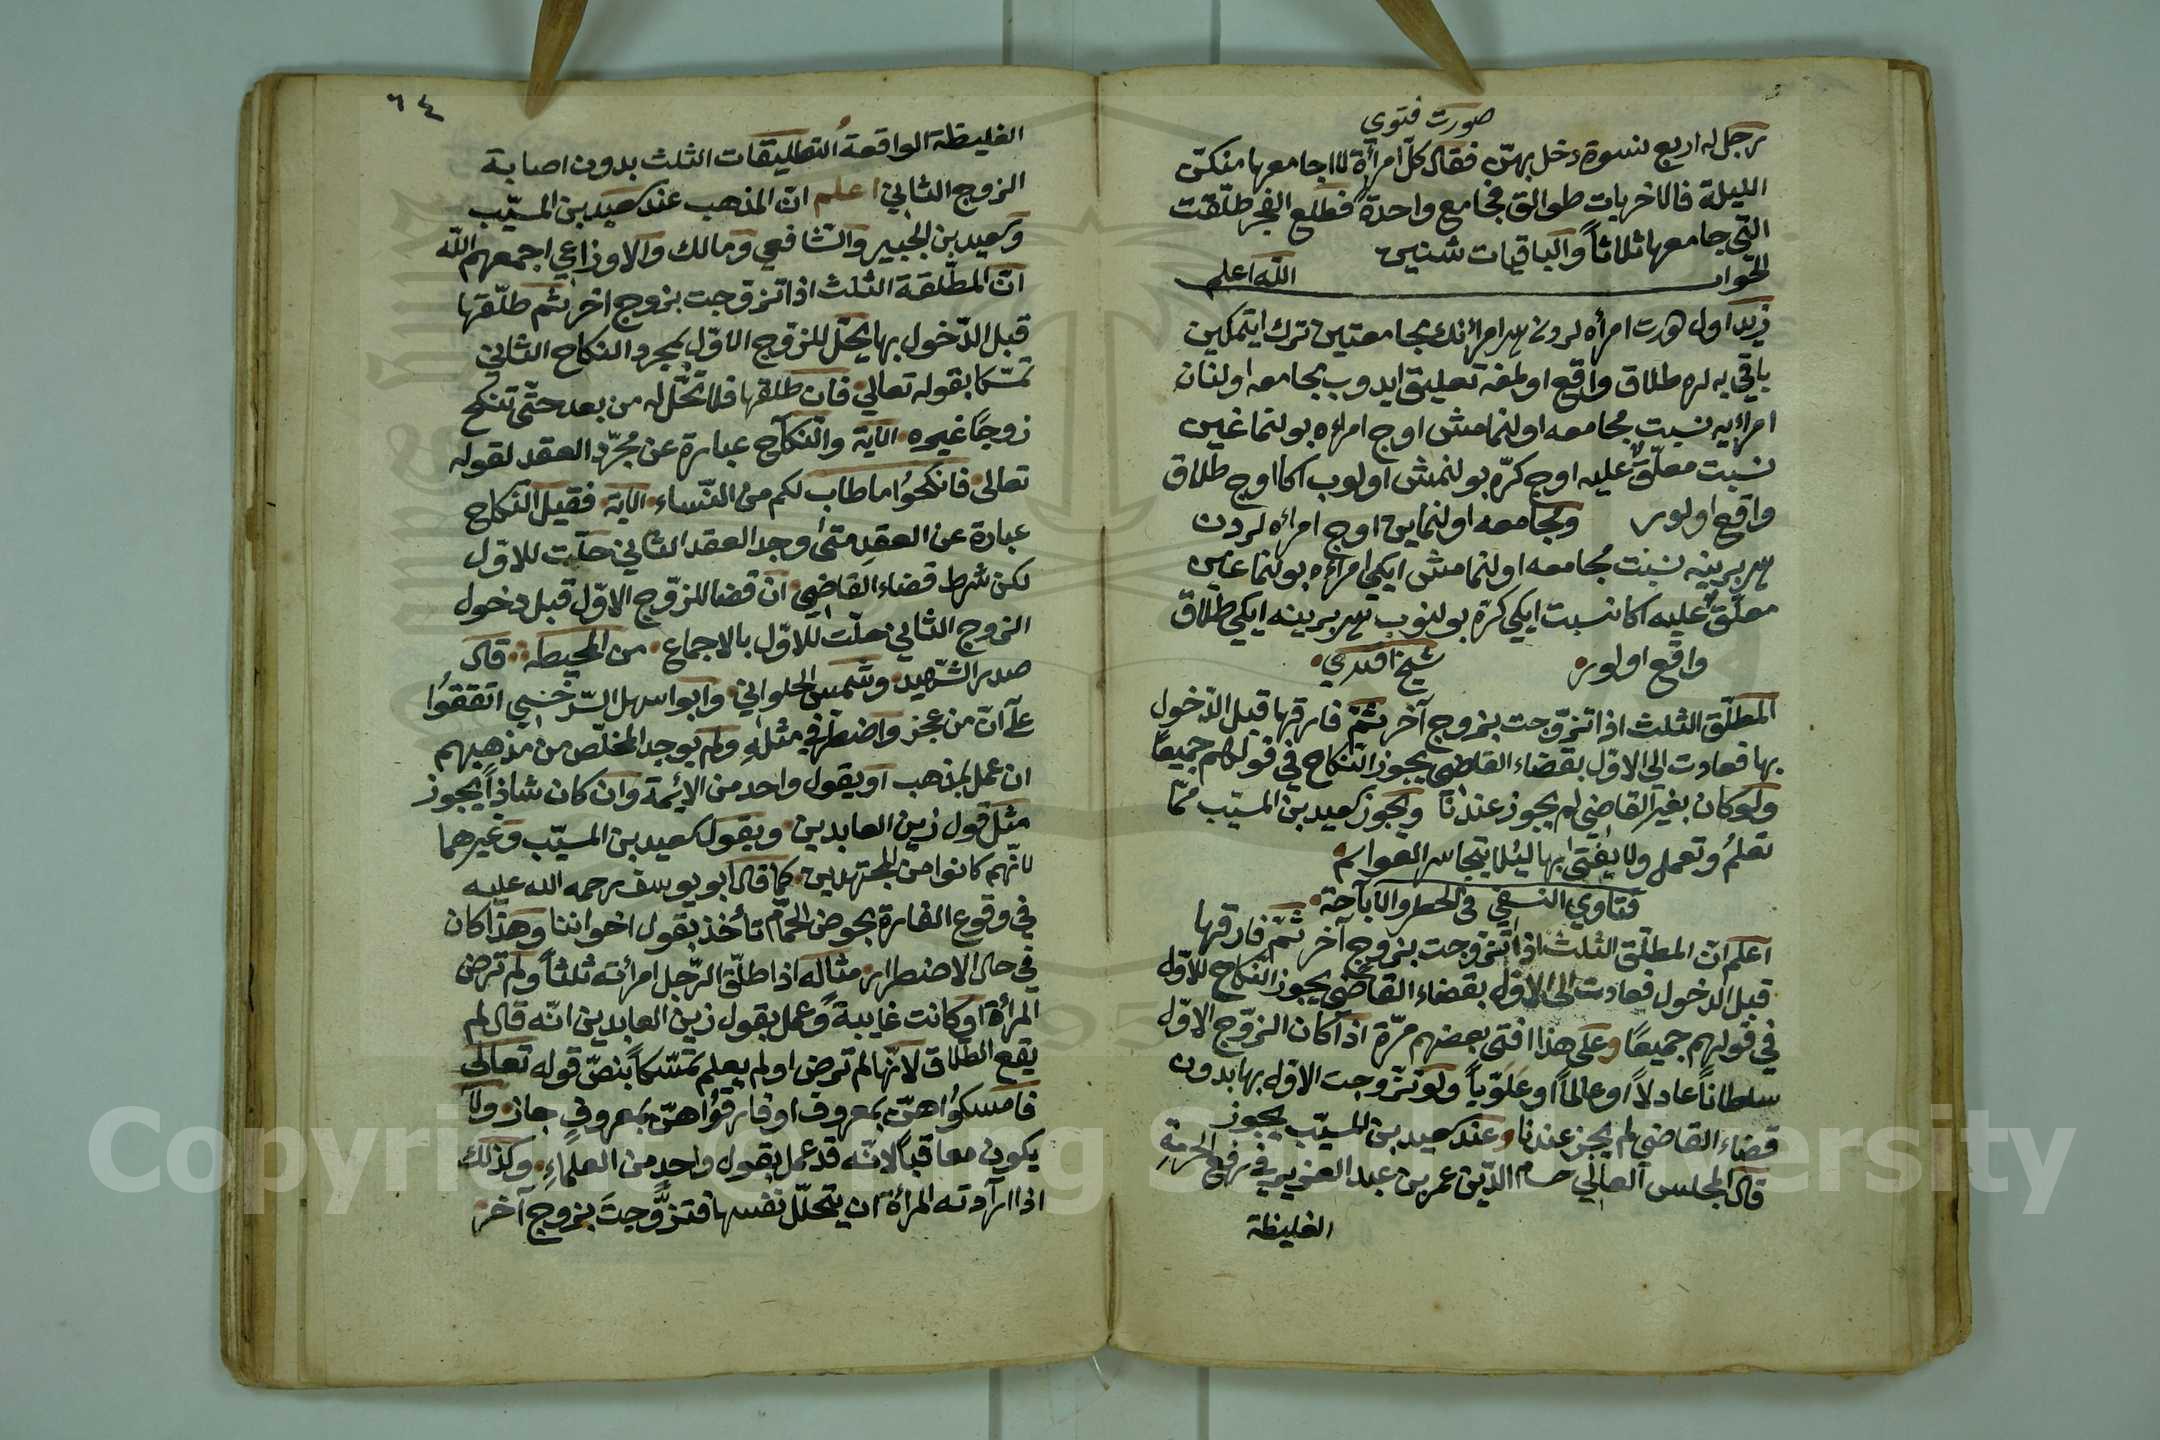 صورت فتوى
رجل له اربع نسوة دخل بهنّ فقال كلّ امرأة لا اجامعها منكنّ
الليلة فالاخريات طوالق فجامع واحدة فطلع الفجر طلّقت
التى جامعها ثلاثاً والباقيات ثنتين
الجواب الله اعلم
زيد اول درت امرأه لردن هر امرأنك مجامعتين ترك ايتمكين
باقيه لره طلاق واقع اولمغه تعليق ايدوب مجامعه اولنان
امرأيه نسبت مجامعه اولنمامش اوج امرأه بولنماغين
نسبت معلّق عليه اوج كرّه بولنمش اولوب اكا اوج طلاق
واقع اولور ومجامعه اولنماين اوج امرأه لردن
هر برينه نسبت مجامعه اولنمامش ايكى امرأه بولنماغين
معلّق عليه اكا نسبت ايكى كرّه بولنوب هر برينه ايكى طلاق
واقع اولور شيخ افندى
المطلّق الثلث اذا تزوّجت بزوج آخر ثمّ فارقها قبل الدّخول
بها فعادت الى الاوّل بقضاء القاضى يجوز النكاح فى قولهم جميعاً
ولو كان بغير القاضى لم يجوز عندنا ويجوز سعيد بن المسيّب ممّا
تعلم وتعمل ولا يفتى بها لئلا يتجاسر العوام
فتاوى النسفى فى الحظر والاباحة
اعلم انّ المطلّق الثلث اذا تزوجت بزوج آخر ثمّ فارقها
قبل الدخول فعادت الى الاوّل بقضاء القاضى يجوز النكاح للاوّل
فى قولهم جميعًا وعلى هذا افتى بعضهم مرّة اذا كان الزّوج الاوّل
سلطاناً عادلاً او عالماً او علويّاً ولو تزوجت الاول بها بدون
قضاء القاضى لم يجز عندنا وعند سعيد بن المسيّب يجوز
قال المجلس العالى حسام الدّين عمر بن عبد العزيز فى رفع الحرمة
الغليظة
٦٤
الغليظة الواقعة التطليقات الثلث بدون اصابة
الزوج الثانى اعلم انّ المذهب عند سعيد بن المسيّب
وسعيد بن الجبير والشافعى ومالك والاوزاعى اجمعهم الله
انّ المطلّقة الثلث اذا تزوجت بزوج اخر ثم طلّقها
قبل الدّخول بها يحلّ للزوّج الاوّل بمجرد النكاح الثانى
تمسّكا بقوله تعالى فان طلقها فلا تحلّ له من بعد حتّى تنكح
زوجًا غيره الآية والنكاح عبارة عن مجرّد العقد لقوله
تعالى فانكحوا ما طاب لكم من النّساء الاية فقيل النّكاح
عبارة عن العقد متى وجد العقد الثانى حلّت للاوّل
لكن شرط قضاء القاضى ان قضا للزوّج الاوّل قبل دخول
الزوج الثانى حلّت للاوّل بالاجماع من المحيطه قال
صدر الشّهيد وشمس الحلوانى وابو اسهل السّرخسى اتفقوا
على انّ من عجز واضطر فى مثله ولم يوجد المخلص من مذهبهم
ان عمل بمذهب او بقول واحد من الائمة وان كان شاذاً يجوز
مثل قول زين العابدين وبقول سعيد بن المسيّب وغيرهما
لانّهم كانوا من المجتهدين كما قال ابو يوسف رحمه الله عليه
فى وقوع الفارة بحوض الحمّام تأخذ بقول اخواننا وهذا كان
فى حال الاضطرار مثاله اذا طلّق الرّجل امرأته ثلثاً ولم ترض
المرأة او كانت غايبة وعمل بقول زين العابدين انّه قال لم
يقع الطلاق لانّها لم ترض او لم يعلم تمسّكاً بنصّ قوله تعالى
فامسكوا هنّ بمعروف او فارقوا هنّ بمعروف جاز ولا
يكون معاقباً لانّه قد عمل بقول واحد من العلماء وكذلك
اذا ارآدته المرأة ان يتحلّل نفسها فتزوّجت بزوج آخر
Copyright © King Saud University